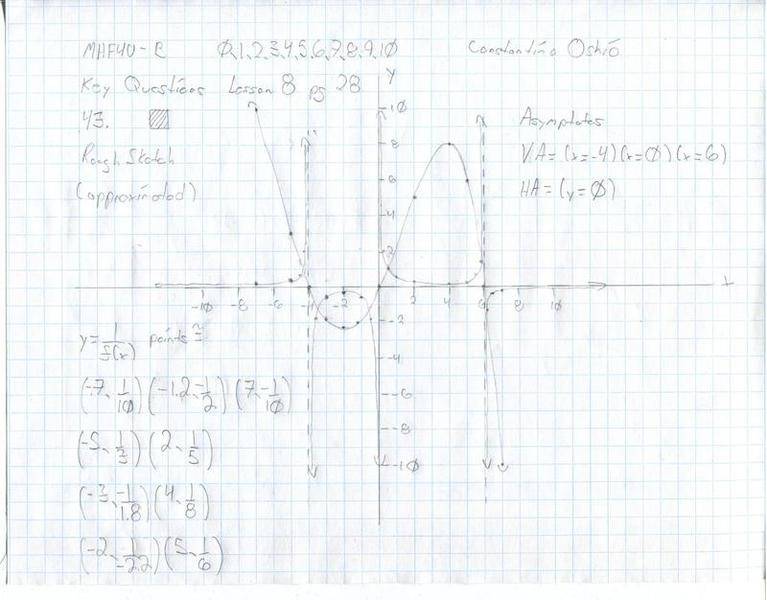 MHF4U-C 0,1,2,3,4,5,6,7,8,9,10 Constantino Oshiō
Key Questions Lesson 8 pg 28
43.
Rough Sketch
(approximated)
Asymptotes
V.A = (x=-4)(x=0)(x=6)
HA = (y=0)
y
10
8
6
4
2
-10 -8 -6 -4 -2 2 4 6 8 10 x
-2
-4
-6
-8
-10
y = 1/f(x) points ≅
(-7, 1/10) (-1.2, -1/2) (7, -1/10)
(-5, 1/3) (2, 1/5)
(-3, -1/1.8) (4, 1/8)
(-2, 1/-2.2) (5, 1/6)